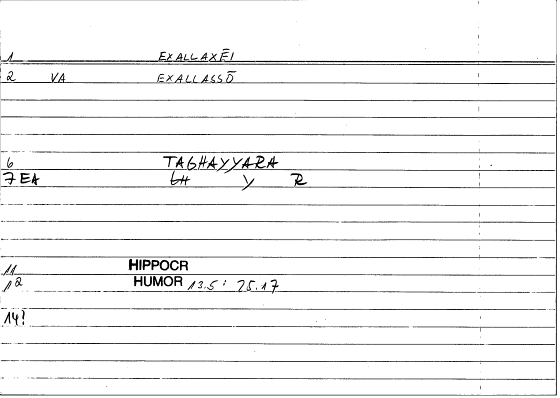 1 EXALLAXĒI
2 VA EXALLASSŌ
6 TAGHAYYARA
7 EA GH Y R
11 HIPPOCR
12 HUMOR 13.5 : 25.17
14!